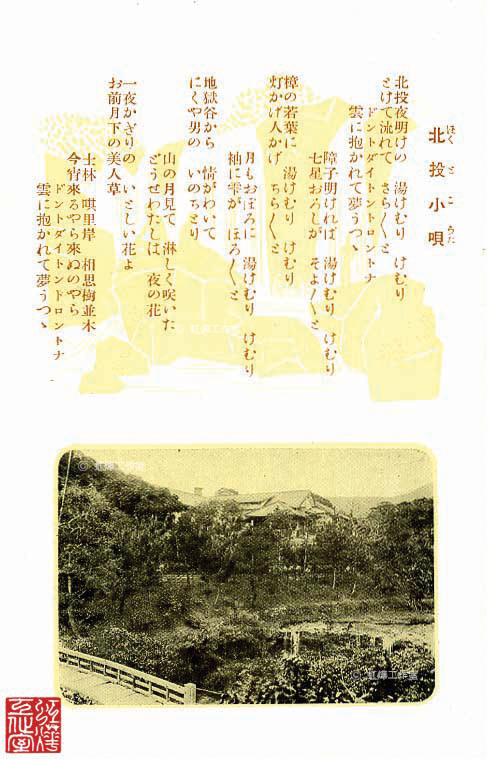 北投小唄
ほくとこうた
北投夜明けの　湯けむり　けむり
とけて流れて　さら〱と
ドントダイトントロントナ
雲に抱かれて夢うつゝ
障子明ければ　湯けむり　けむり
七星おろしが　そよ〱と
樟の若葉に　湯けむり　けむり
灯かげ人かげ　ちら〱と
月もおぼろに　湯けむり　けむり
袖に雫が　ほろ〱と
地獄谷から　情がわいて
にくや男の　いのちとり
山の月見て　淋しく咲いた
どうせわたしは　夜の花
一夜かぎりの　いとしい花よ
お前月下の美人草
士林　唭里岸　相思樹並木
今宵來るやら來ぬのやら
ドントダイトントロントナ
雲に抱かれて夢うつゝ
© 虹燁工作室
© 虹燁工作室
© 虹燁工作室